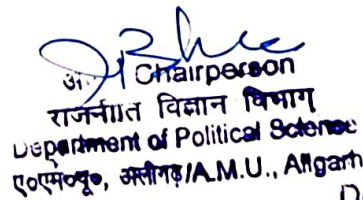 Chairperson
राजनीति विज्ञान विभाग
Department of Political Science
ए०एम०यू०, अलीगढ़/A.M.U., Aligarh